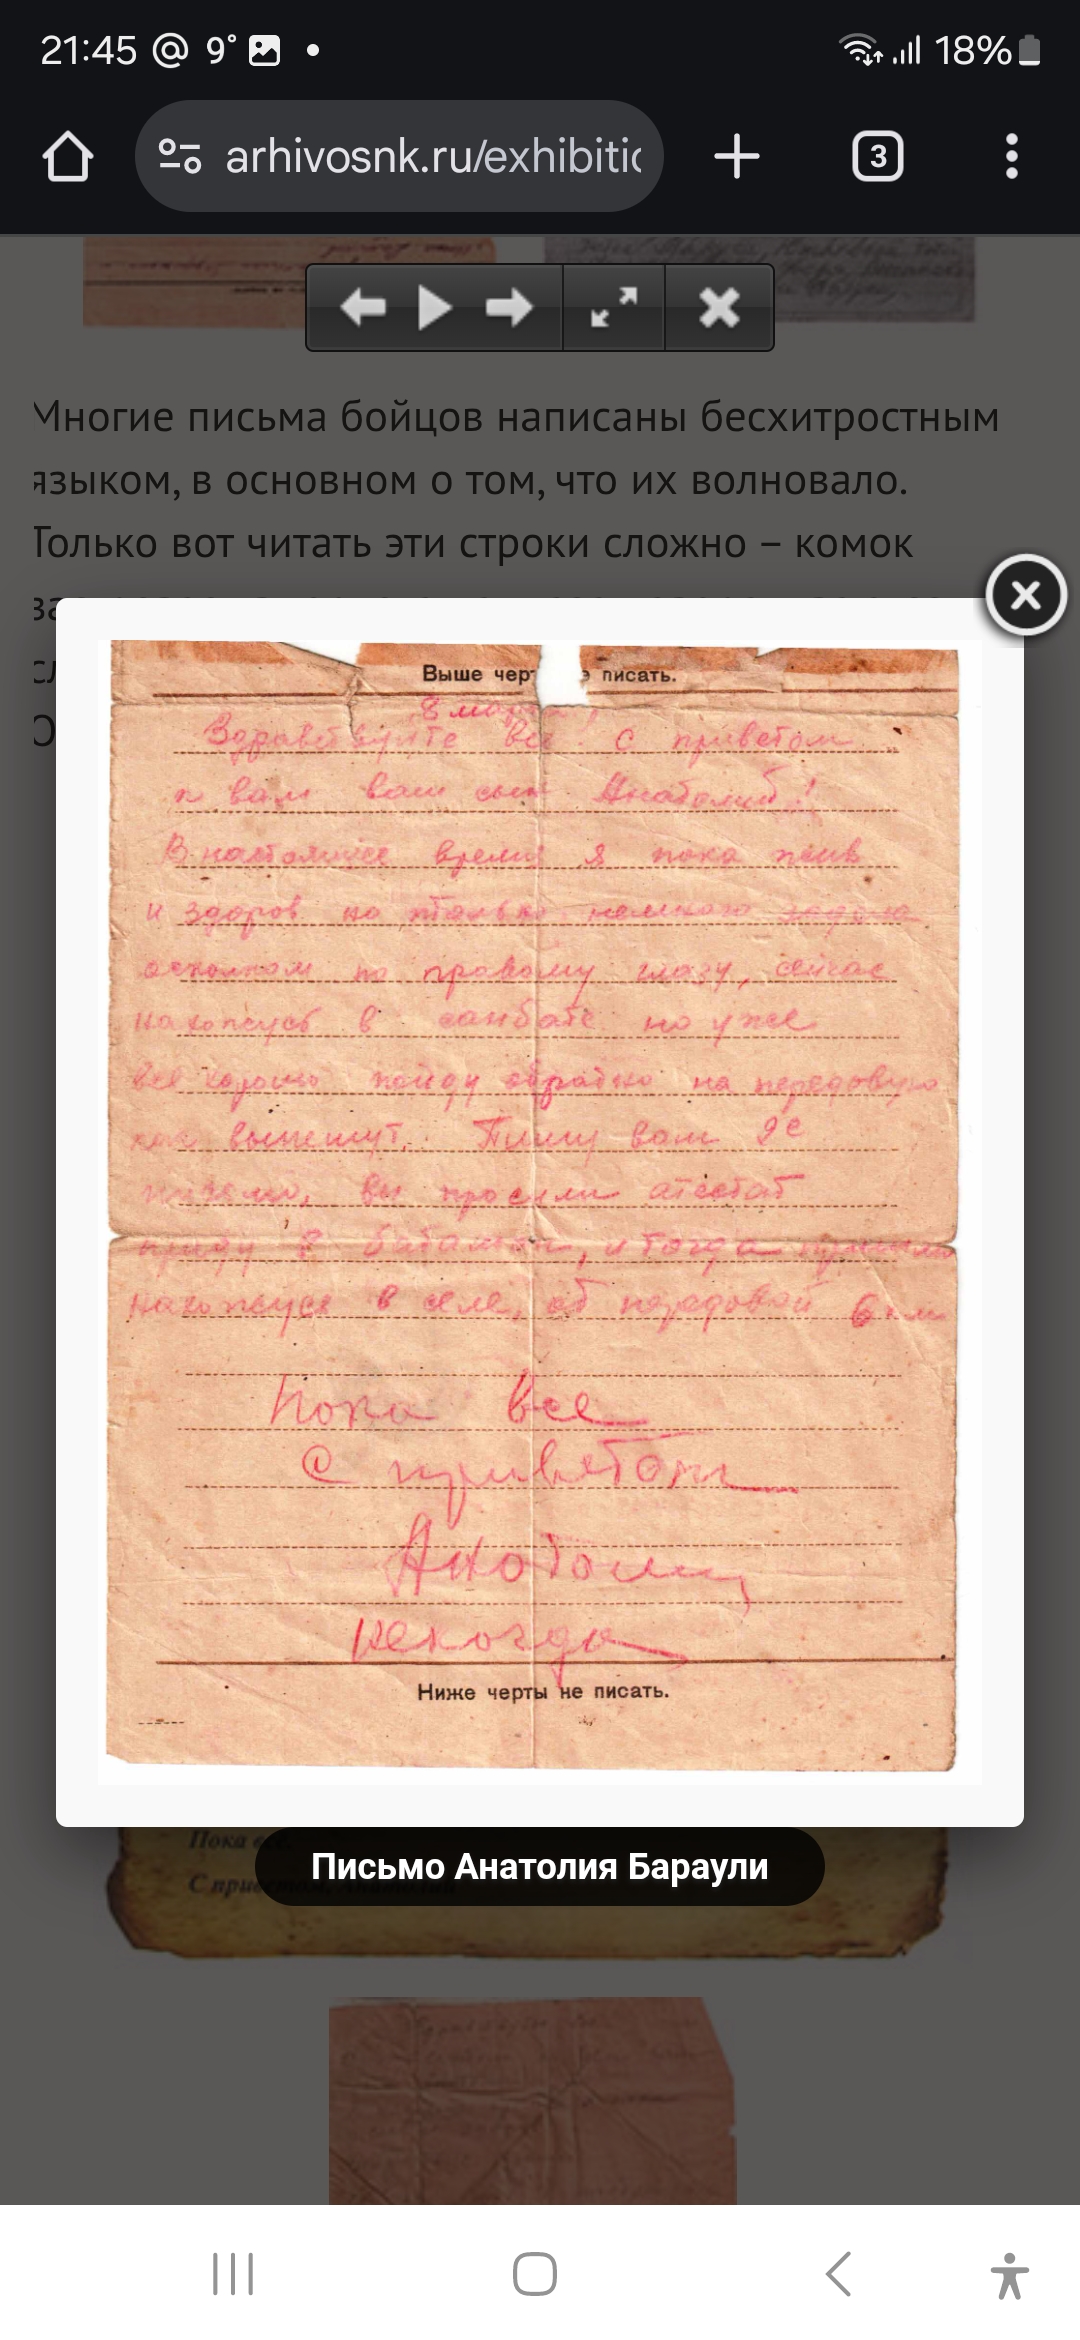 21:45 @ 9° 18%
arhivosnk.ru/exhibitic
3
Многие письма бойцов написаны бесхитростным
языком, в основном о том, что их волновало.
Только вот читать эти строки сложно – комок
Выше черт е писать.
8 марта!
Здравствуйте все! с приветом
к вам ваш сын Анатолий!
В настоящее время я пока жив
и здоров но только немного задело
осколком по правому глазу, сейчас
нахожусь в санбате но уже
все хорошо пойду обратно на передовую
как выпишут. Пишу вам 9е
письмо, вы просили атестат
приду в батальон, и тогда
нахожусь в селе, от передовой 6 км
Пока все
С приветом
Анатолий
некогда
Ниже черты не писать.
Пока все.
Письмо Анатолия Бараули
С приветом, Анатолий